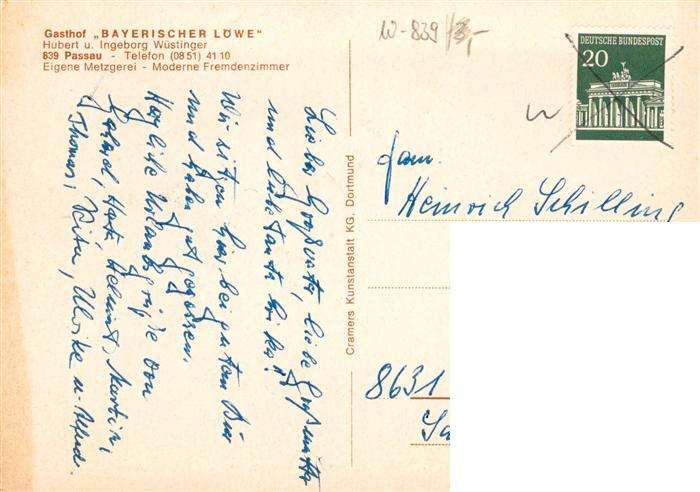 Gasthof „BAYERISCHER LÖWE"
Hubert u. Ingeborg Wüstinger
839 Passau - Telefon (08 51) 41 10
Eigene Metzgerei - Moderne Fremdenzimmer
W-839
DEUTSCHE BUNDESPOST
20
Cramers Kunstanstalt KG, Dortmund
Lieber Großvater, liebe Großmutter
und liebe Tante
Wir sitzen hier bei gutem Bier
und haben gut gegessen.
Herzliche Urlaubsgrüße von
Helmut, Martin,
Thomas, Ulrike u. Alfred.
Fam.
Heinrich Schilling
8631